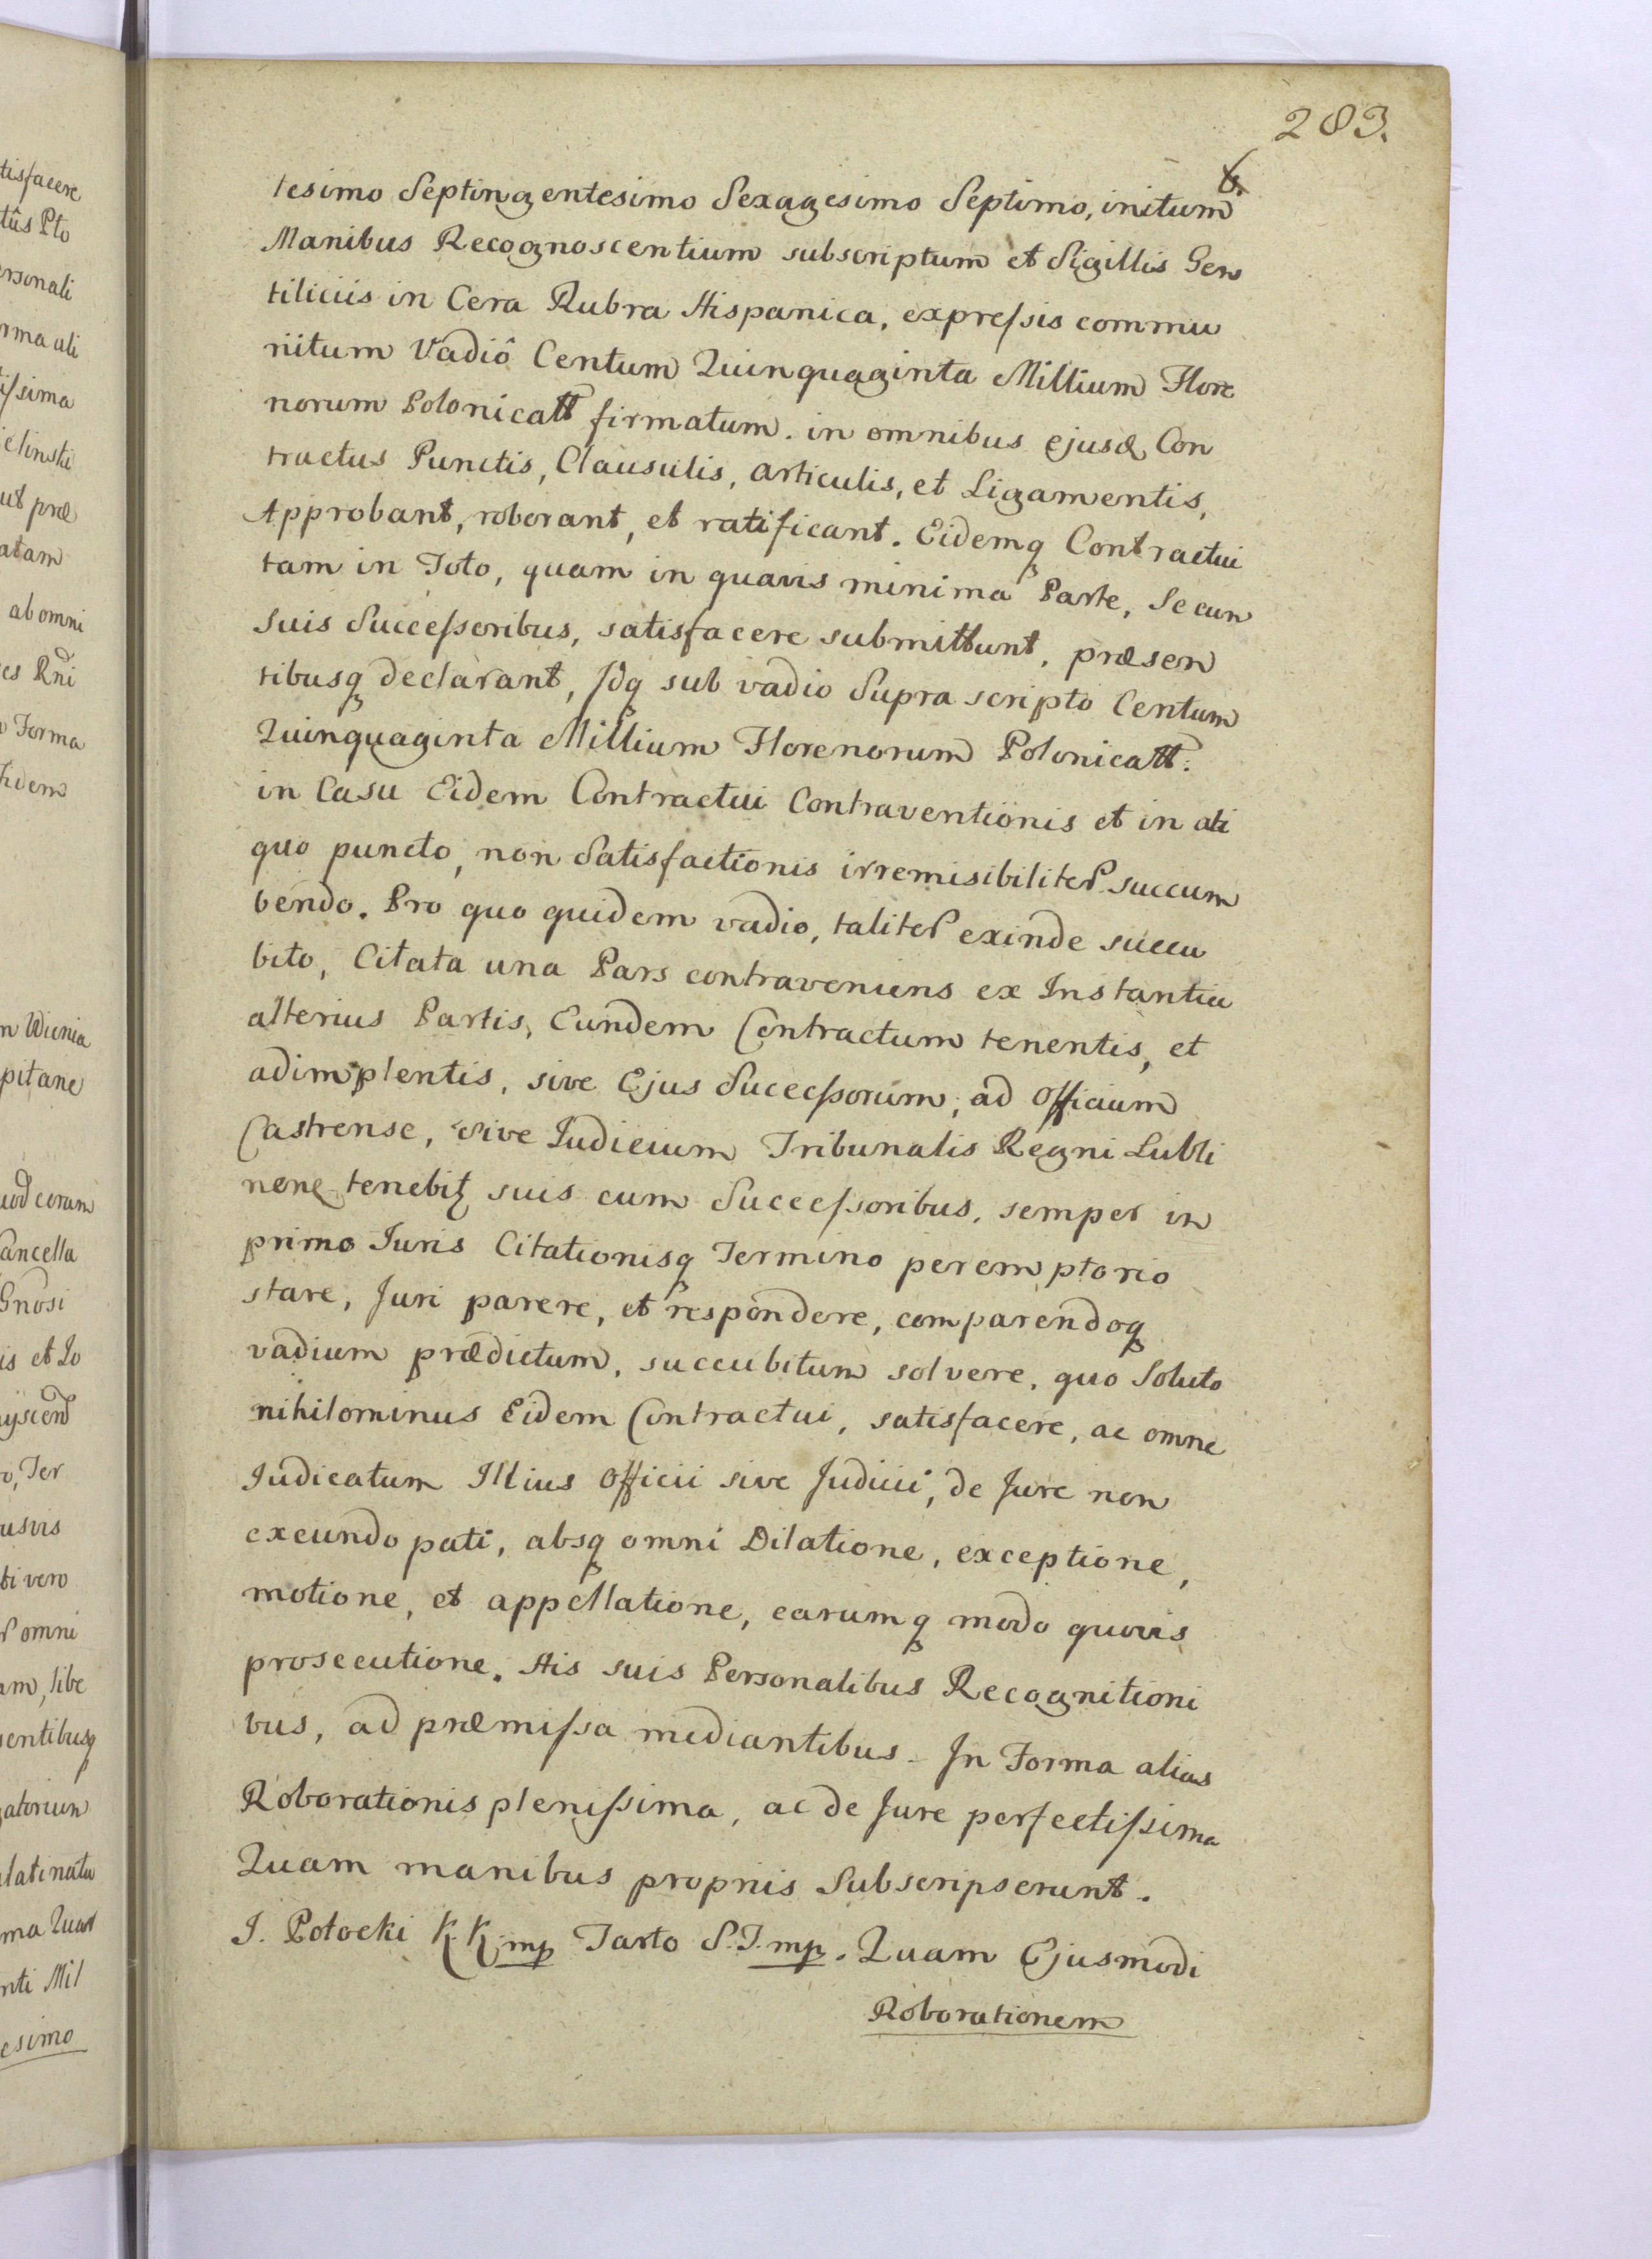 283.
tesimo Septingentesimo Sexagesimo Septimo, initum
Manibus Recognoscentium subscriptum et Sigillis Gen
tiliciis in Cera Rubra Hispanica, expressis commu
nitum Vadiô Centum Quinquaginta Millium Flore
norum Polonicall firmatum. in omnibus ejusd, Con
tractus Punctis, Clausulis, articulis, et Ligamentis,
Approbant, roborant, et ratificant. Eidemq Contractui
tam in Toto, quam in quavis minima Parte, Se cum
suis Successoribus, satisfacere submittunt, præsen
tibusq declarant, Idq sub vadio Supra scripto Centum
Quinquaginta Millium Florenorum Polonicall:
in Casu Eidem Contractui Contraventionis et in ali
quo puncto, non Satisfactionis irremisibiliter succum
bendo. Pro quo quidem vadio, taliter exinde succu
bito, Citata una Pars contraveniens ex Instantia
alterius Partis, Eundem Contractum tenentis, et
adimplentis, sive Ejus Successorum, ad Officium
Castrense, sive Iudicium Tribunalis Regni Lubli
nen tenebit suis cum Successoribus, semper in
primo Iuris Citationisq Termino peremptorio
stare, Juri parere, et respondere, comparendoq
vadium prædictum, succubitum solvere, quo Soluto
nihilominus Eidem Contractui, satisfacere, ac omne
Iudicatum Illius Officii sive Judicii, de Jure non
exeundo pati, absq omni Dilatione, exceptione,
motione, et appellatione, earumq modo quovis
prosecutione. His suis Personalibus Recognitioni
bus, ad præmissa mediantibus. In Forma alias
Roborationis plenissima, ac de Jure perfectissima
Quam manibus propriis Subscripserunt.
J. Potocki K. K. mp Tarło S. T. mp. Quam Ejusmodi
Roborationem